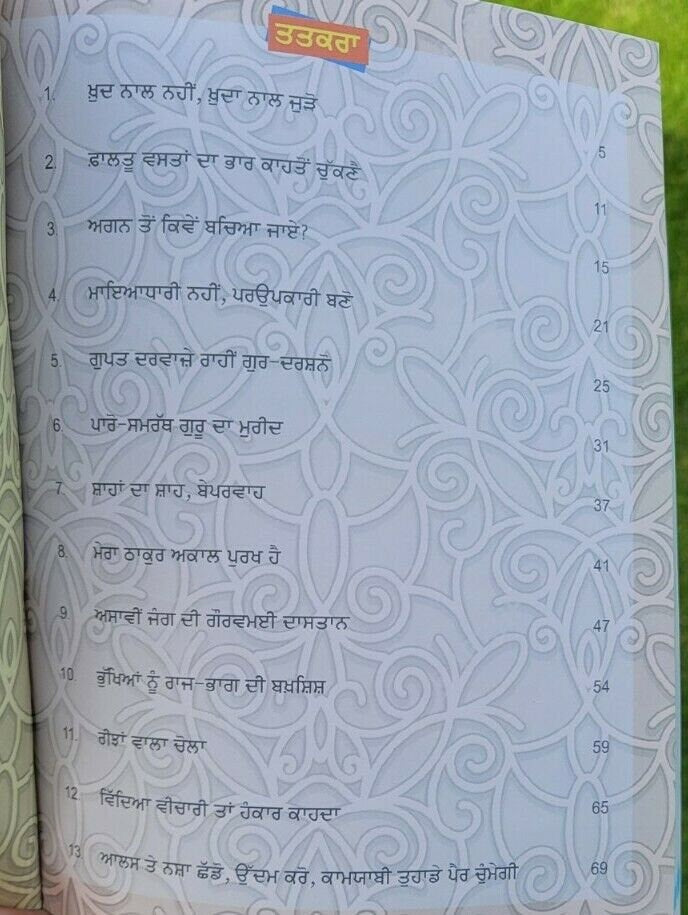 ਤਤਕਰਾ
1. ਖ਼ੁਦ ਨਾਲ ਨਹੀਂ, ਖ਼ੁਦਾ ਨਾਲ ਜੁੜੋ 5
2. ਫ਼ਾਲਤੂ ਵਸਤਾਂ ਦਾ ਭਾਰ ਕਾਹਤੋਂ ਚੁੱਕਣੈ 11
3. ਅਗਨ ਤੋਂ ਕਿਵੇਂ ਬਚਿਆ ਜਾਏ? 15
4. ਮਾਇਆਧਾਰੀ ਨਹੀਂ, ਪਰਉਪਕਾਰੀ ਬਣੋ 21
5. ਗੁਪਤ ਦਰਵਾਜ਼ੇ ਰਾਹੀਂ ਗੁਰ-ਦਰਸ਼ਨੋਂ 25
6. ਪਾਰੋ-ਸਮਰੱਥ ਗੁਰੂ ਦਾ ਮੁਰੀਦ 31
7. ਸ਼ਾਹਾਂ ਦਾ ਸ਼ਾਹ, ਬੇਪਰਵਾਹ 37
8. ਮੇਰਾ ਠਾਕੁਰ ਅਕਾਲ ਪੁਰਖ ਹੈ 41
9. ਅਸਾਵੀਂ ਜੰਗ ਦੀ ਗੌਰਵਮਈ ਦਾਸਤਾਨ 47
10. ਭੁੱਖਿਆਂ ਨੂੰ ਰਾਜ-ਭਾਗ ਦੀ ਬਖ਼ਸ਼ਿਸ਼ 54
11. ਰੀਝਾਂ ਵਾਲਾ ਚੋਲਾ 59
12. ਵਿੱਦਿਆ ਵੀਚਾਰੀ ਤਾਂ ਹੰਕਾਰ ਕਾਹਦਾ 65
13. ਆਲਸ ਤੇ ਨਸ਼ਾ ਛੱਡੋ, ਉੱਦਮ ਕਰੋ, ਕਾਮਯਾਬੀ ਤੁਹਾਡੇ ਪੈਰ ਚੁੰਮੇਗੀ 69